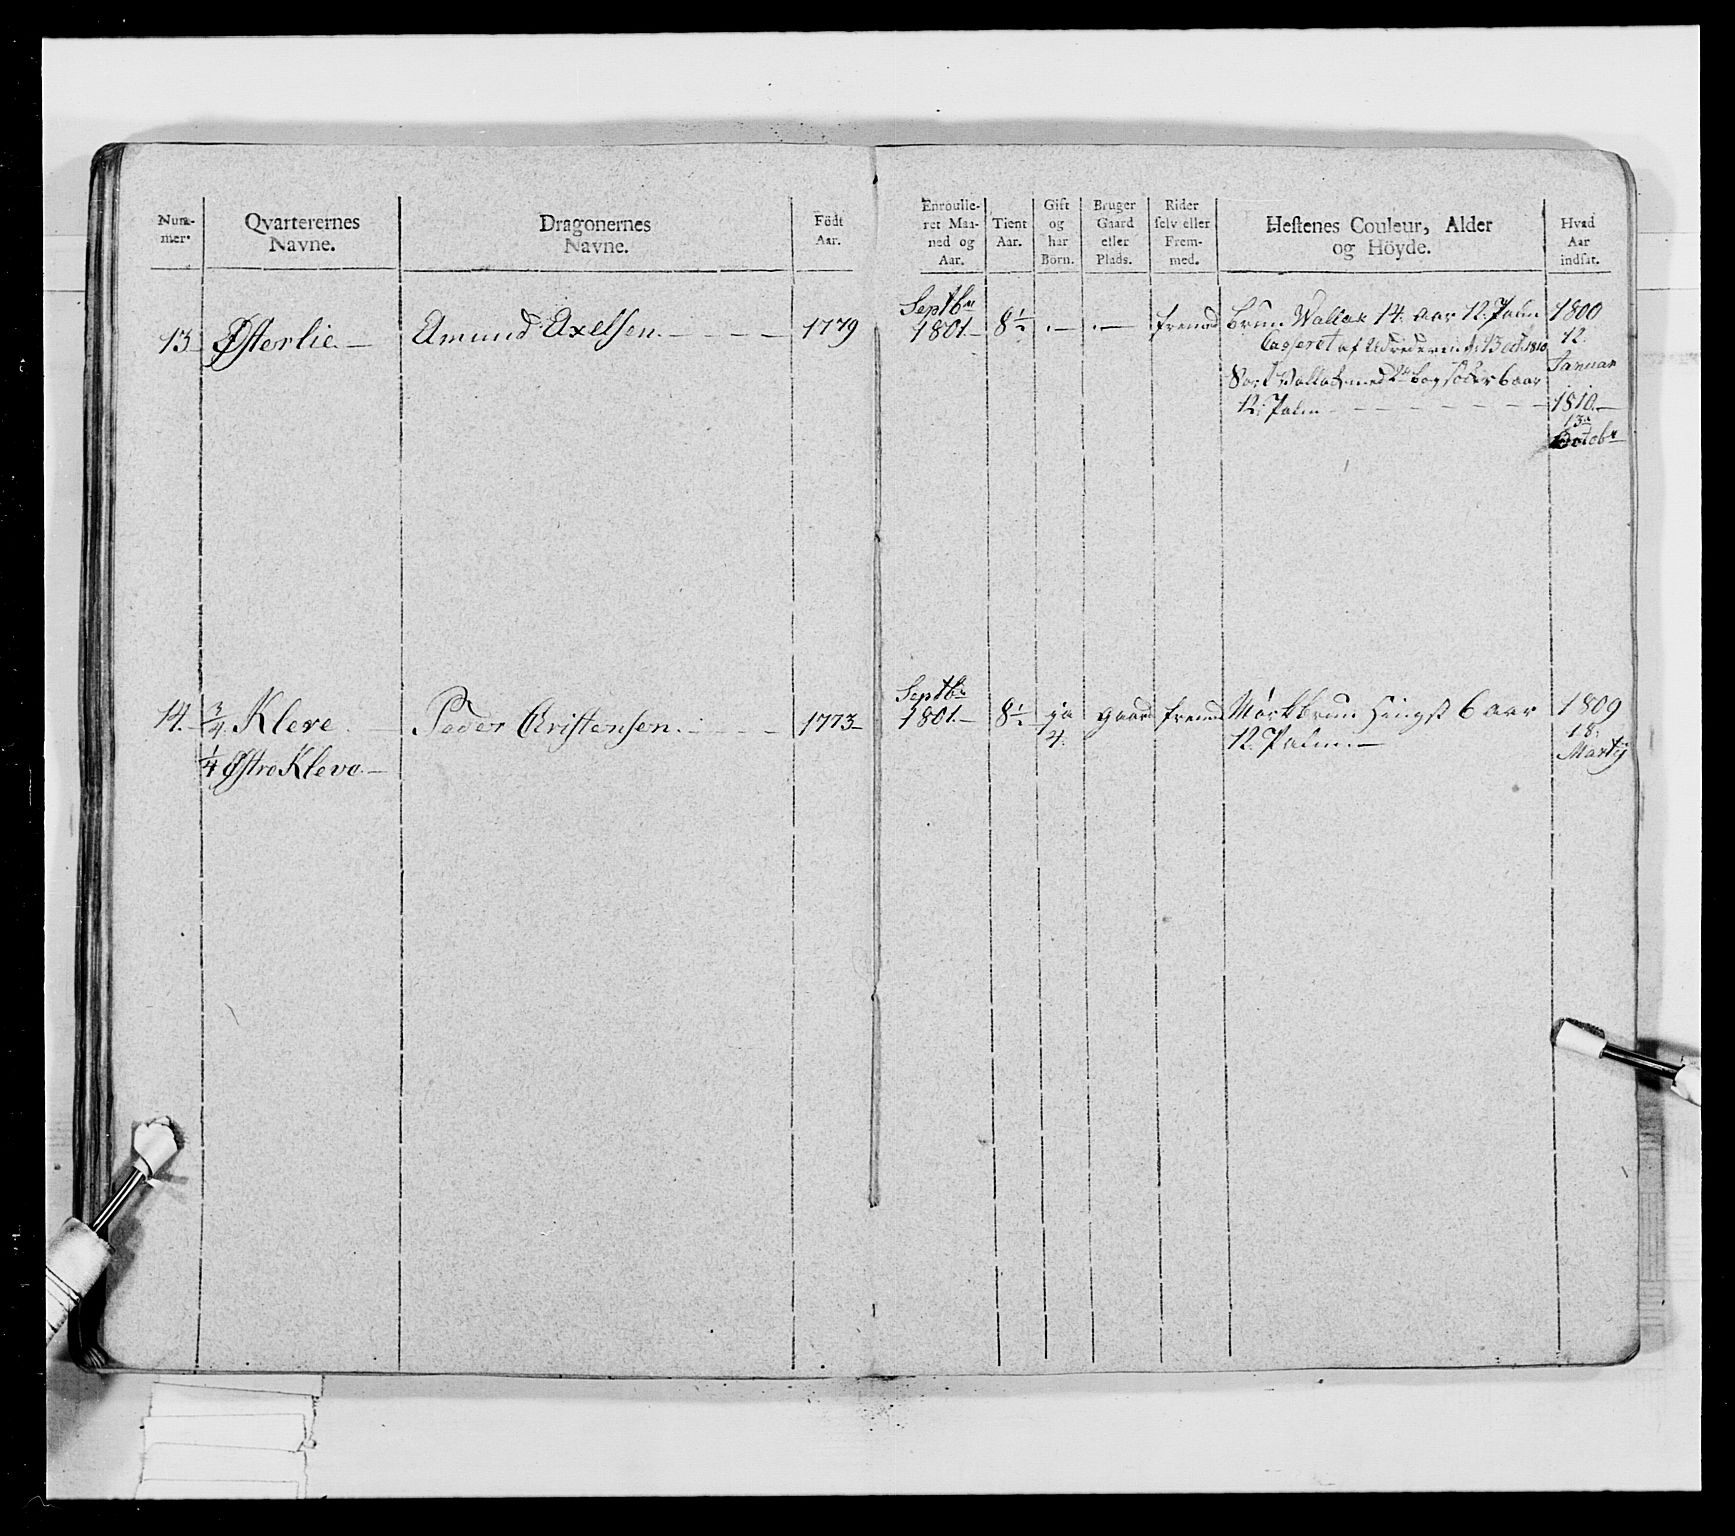 Num-
mer.
Qvarterernes
Navne.
Dragonernes
Navne.
Födt
Aar.
Enroulle-
ret Maa-
ned og
Aar.
Tient
Aar.
Gift
og
har
Börn.
Bruger
Gaard
eller
Plads.
Rider
selv eller
Frem-
med.
Hestenes Couleur, Alder
og Höyde.
Hvad
Aar
indsat.
13 Østerlie. — Amund Axelsen. — — — 1779 Septbr 1801. — 8½ . — . — fremed
Brun Wallak 14. aar 12. Palm
Casseret af Udrederen d. 13 Oct 1810
Sort Vallak med bagsoder 6 aar
12. Palm — — — — — —
1800
12.
Januar
1810. —
13de
Octobr
14. — ¾ Kleve. — Peder Cristensen. — — — 1773 — Septbr 1801. — 8½ — ja 4. gaard fremed
¼ Østre Kleve. —
Mørkbrun Hingst 6 aar
12. Palm. —
1809
18.
Martij